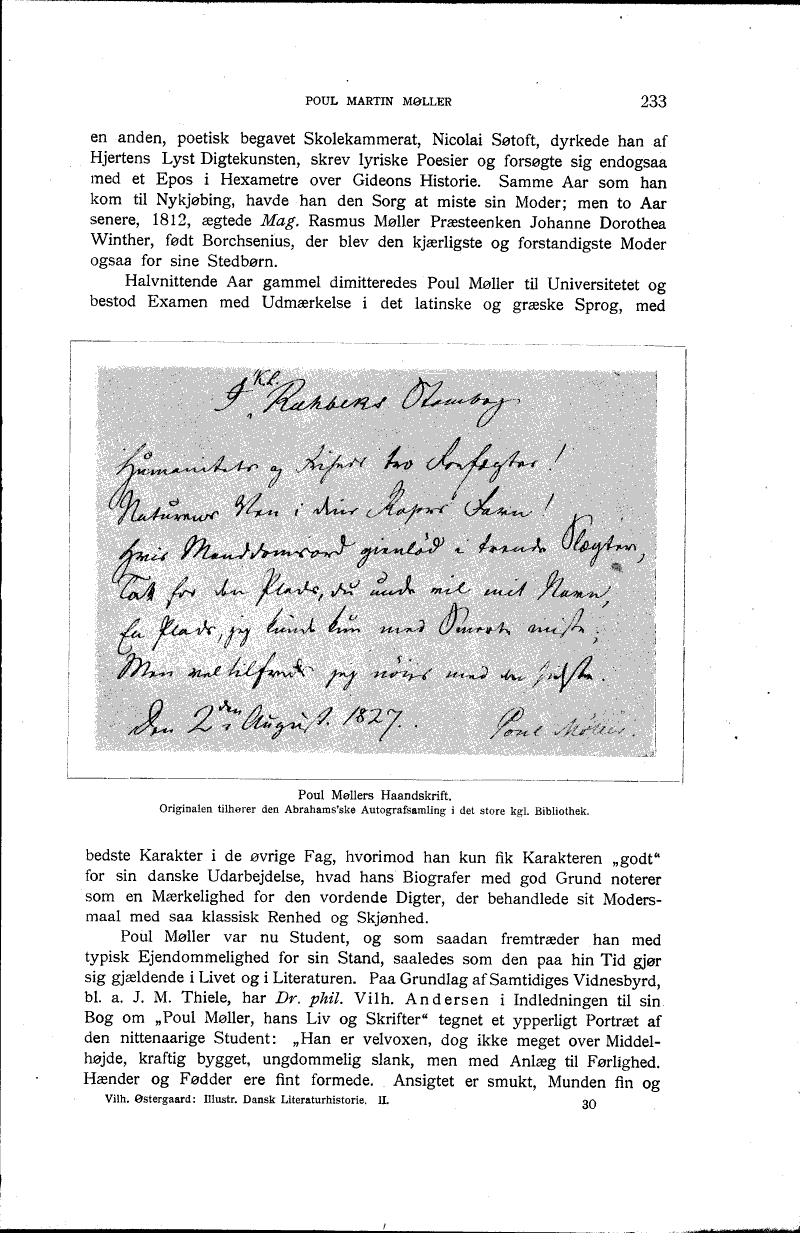 POUL MARTIN MØLLER 233
en anden, poetisk begavet Skolekammerat, Nicolai Søtoft, dyrkede han af
Hjertens Lyst Digtekunsten, skrev lyriske Poesier og forsøgte sig endogsaa
med et Epos i Hexametre over Gideons Historie. Samme Aar som han
kom til Nykjøbing, havde han den Sorg at miste sin Moder; men to Aar
senere, 1812, ægtede Mag. Rasmus Møller Præsteenken Johanne Dorothea
Winther, født Borchsenius, der blev den kjærligste og forstandigste Moder
ogsaa for sine Stedbørn.
Halvnittende Aar gammel dimitteredes Poul Møller til Universitetet og
bestod Examen med Udmærkelse i det latinske og græske Sprog, med
I Kl. Rahbeks Stambog
Humanitets og troe Forfægter!
Naturens Ven i dine Favn!
Hvis Manddomsord gienlød i trende Slægter,
Tak for den Plads, du unde vil mit Navn,
En Plads, jeg kunde kun med Smerte miste;
Men vel tilfreds jeg nöies med den sidste.
Den 2den August. 1827. Poul Møller.
Poul Møllers Haandskrift.
Originalen tilhører den Abrahams'ske Autografsamling i det store kgl. Bibliothek.
bedste Karakter i de øvrige Fag, hvorimod han kun fik Karakteren „godt“
for sin danske Udarbejdelse, hvad hans Biografer med god Grund noterer
som en Mærkelighed for den vordende Digter, der behandlede sit Moders-
maal med saa klassisk Renhed og Skjønhed.
Poul Møller var nu Student, og som saadan fremtræder han med
typisk Ejendommelighed for sin Stand, saaledes som den paa hin Tid gjør
sig gjældende i Livet og i Literaturen. Paa Grundlag af Samtidiges Vidnesbyrd,
bl. a. J. M. Thiele, har Dr. phil. Vilh. Andersen i Indledningen til sin
Bog om „Poul Møller, hans Liv og Skrifter“ tegnet et ypperligt Portræt af
den nittenaarige Student: „Han er velvoxen, dog ikke meget over Middel-
højde, kraftig bygget, ungdommelig slank, men med Anlæg til Førlighed.
Hænder og Fødder ere fint formede. Ansigtet er smukt, Munden fin og
Vilh. Østergaard: Illustr. Dansk Literaturhistorie. II. 30